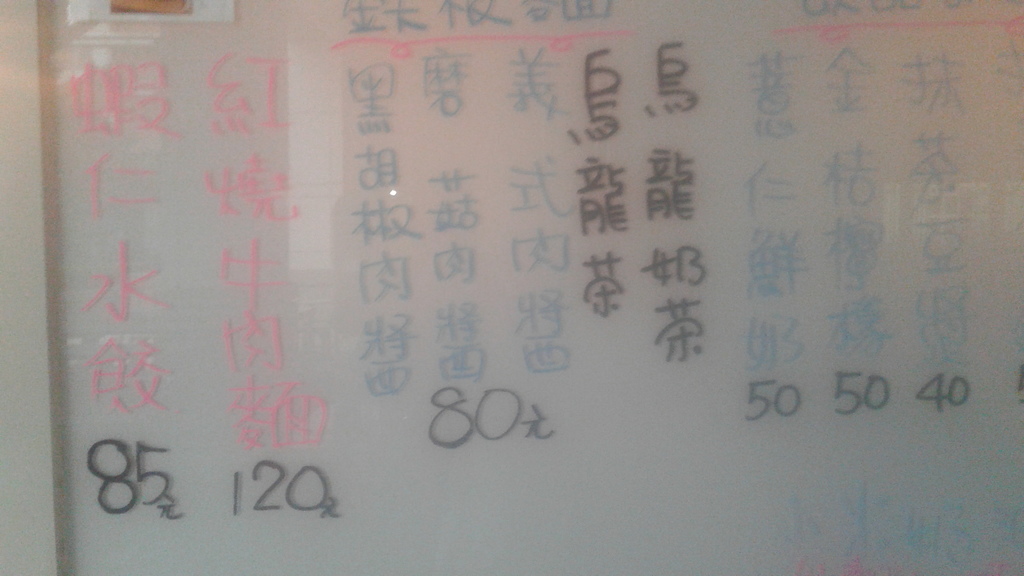 鐵板麵
蝦仁水餃
85元
紅燒牛肉麵
120元
黑胡椒肉醬
磨菇肉醬
義式肉醬
80元
烏龍茶
烏龍奶茶
薏仁鮮奶
50
金桔檸檬
50
抹茶豆漿
40